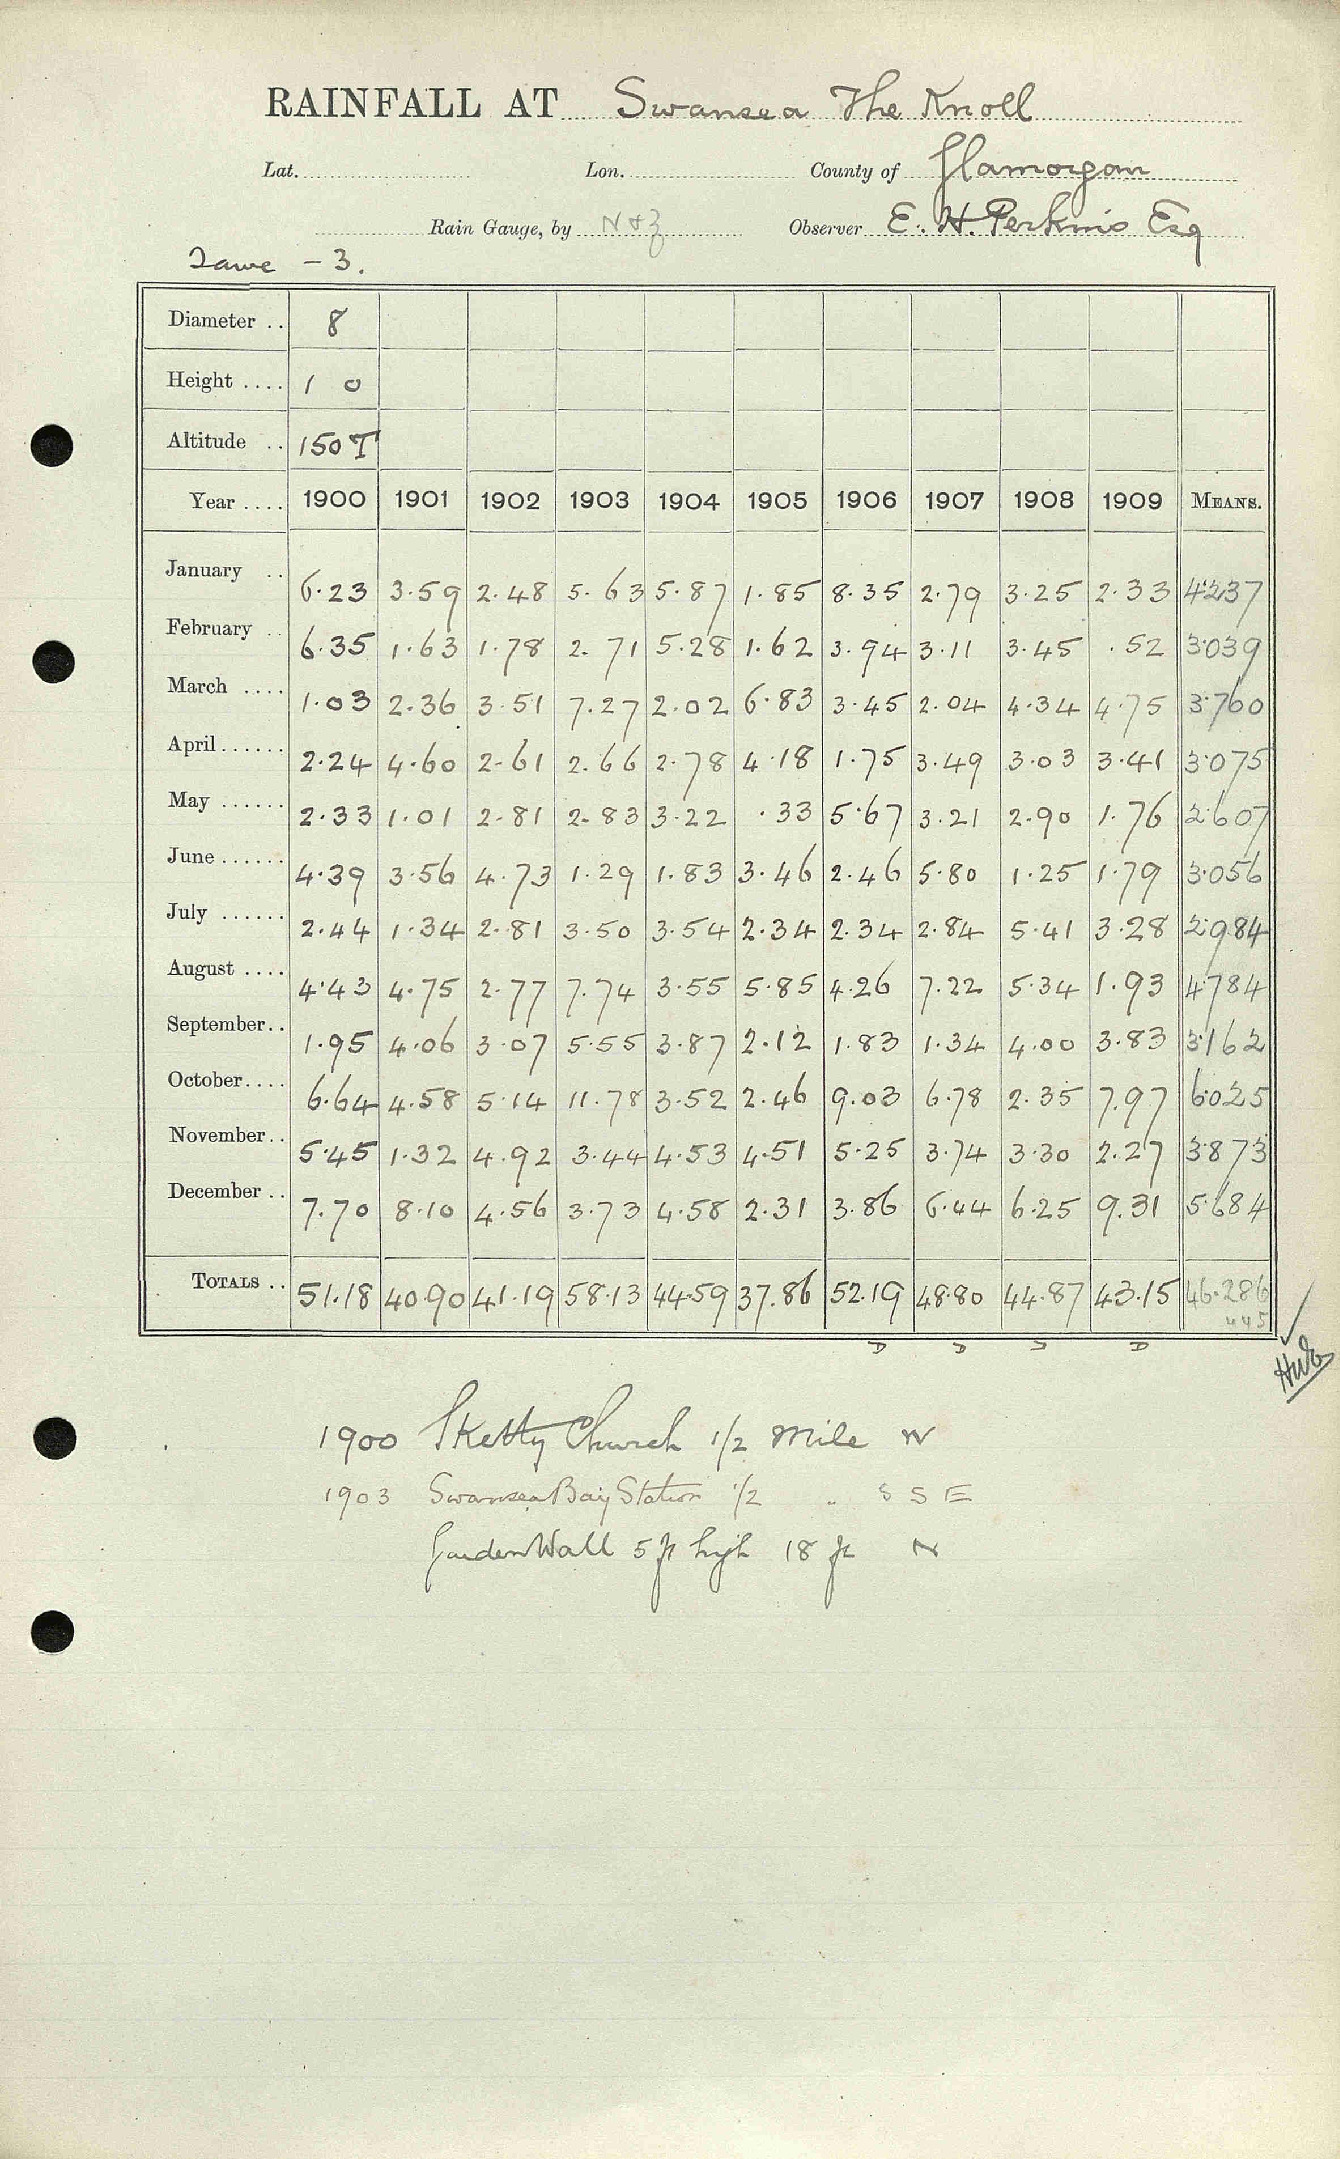 RAINFALL AT Swansea The Knoll
Lat. Lon. County of Glamorgan
Rain Gauge, by N & Z Observer E. H. Perkins Esq
Tawe - 3.
Diameter .. 8
Height .... 1 0
Altitude .. 150 T
Year .... 1900 1901 1902 1903 1904 1905 1906 1907 1908 1909 MEANS.
January .. 6.23 3.59 2.48 5.63 5.87 1.85 8.35 2.79 3.25 2.33 4.237
February .. 6.35 1.63 1.78 2.71 5.28 1.62 3.94 3.11 3.45 .52 3.039
March .... 1.03 2.36 3.51 7.27 2.02 6.83 3.45 2.04 4.34 4.75 3.760
April ...... 2.24 4.60 2.61 2.66 2.78 4.18 1.75 3.49 3.03 3.41 3.075
May ...... 2.33 1.01 2.81 2.83 3.22 .33 5.67 3.21 2.90 1.76 2.607
June ...... 4.39 3.56 4.73 1.29 1.83 3.46 2.46 5.80 1.25 1.79 3.056
July ...... 2.44 1.34 2.81 3.50 3.54 2.34 2.34 2.84 5.41 3.28 2.984
August .... 4.43 4.75 2.77 7.74 3.55 5.85 4.26 7.22 5.34 1.93 4.784
September.. 1.95 4.06 3.07 5.55 3.87 2.12 1.83 1.34 4.00 3.83 3.162
October.... 6.64 4.58 5.14 11.78 3.52 2.46 9.03 6.78 2.35 7.97 6.025
November.. 5.45 1.32 4.92 3.44 4.53 4.51 5.25 3.74 3.30 2.27 3.873
December .. 7.70 8.10 4.56 3.73 4.58 2.31 3.86 6.44 6.25 9.31 5.684
TOTALS .. 51.18 40.90 41.19 58.13 44.59 37.86 52.19 48.80 44.87 43.15 46.286
445
D D D D
1900 Sketty Church 1/2 Mile W
1903 Swansea Bay Station 1/2 " S S E
Garden Wall 5 ft high 18 ft N